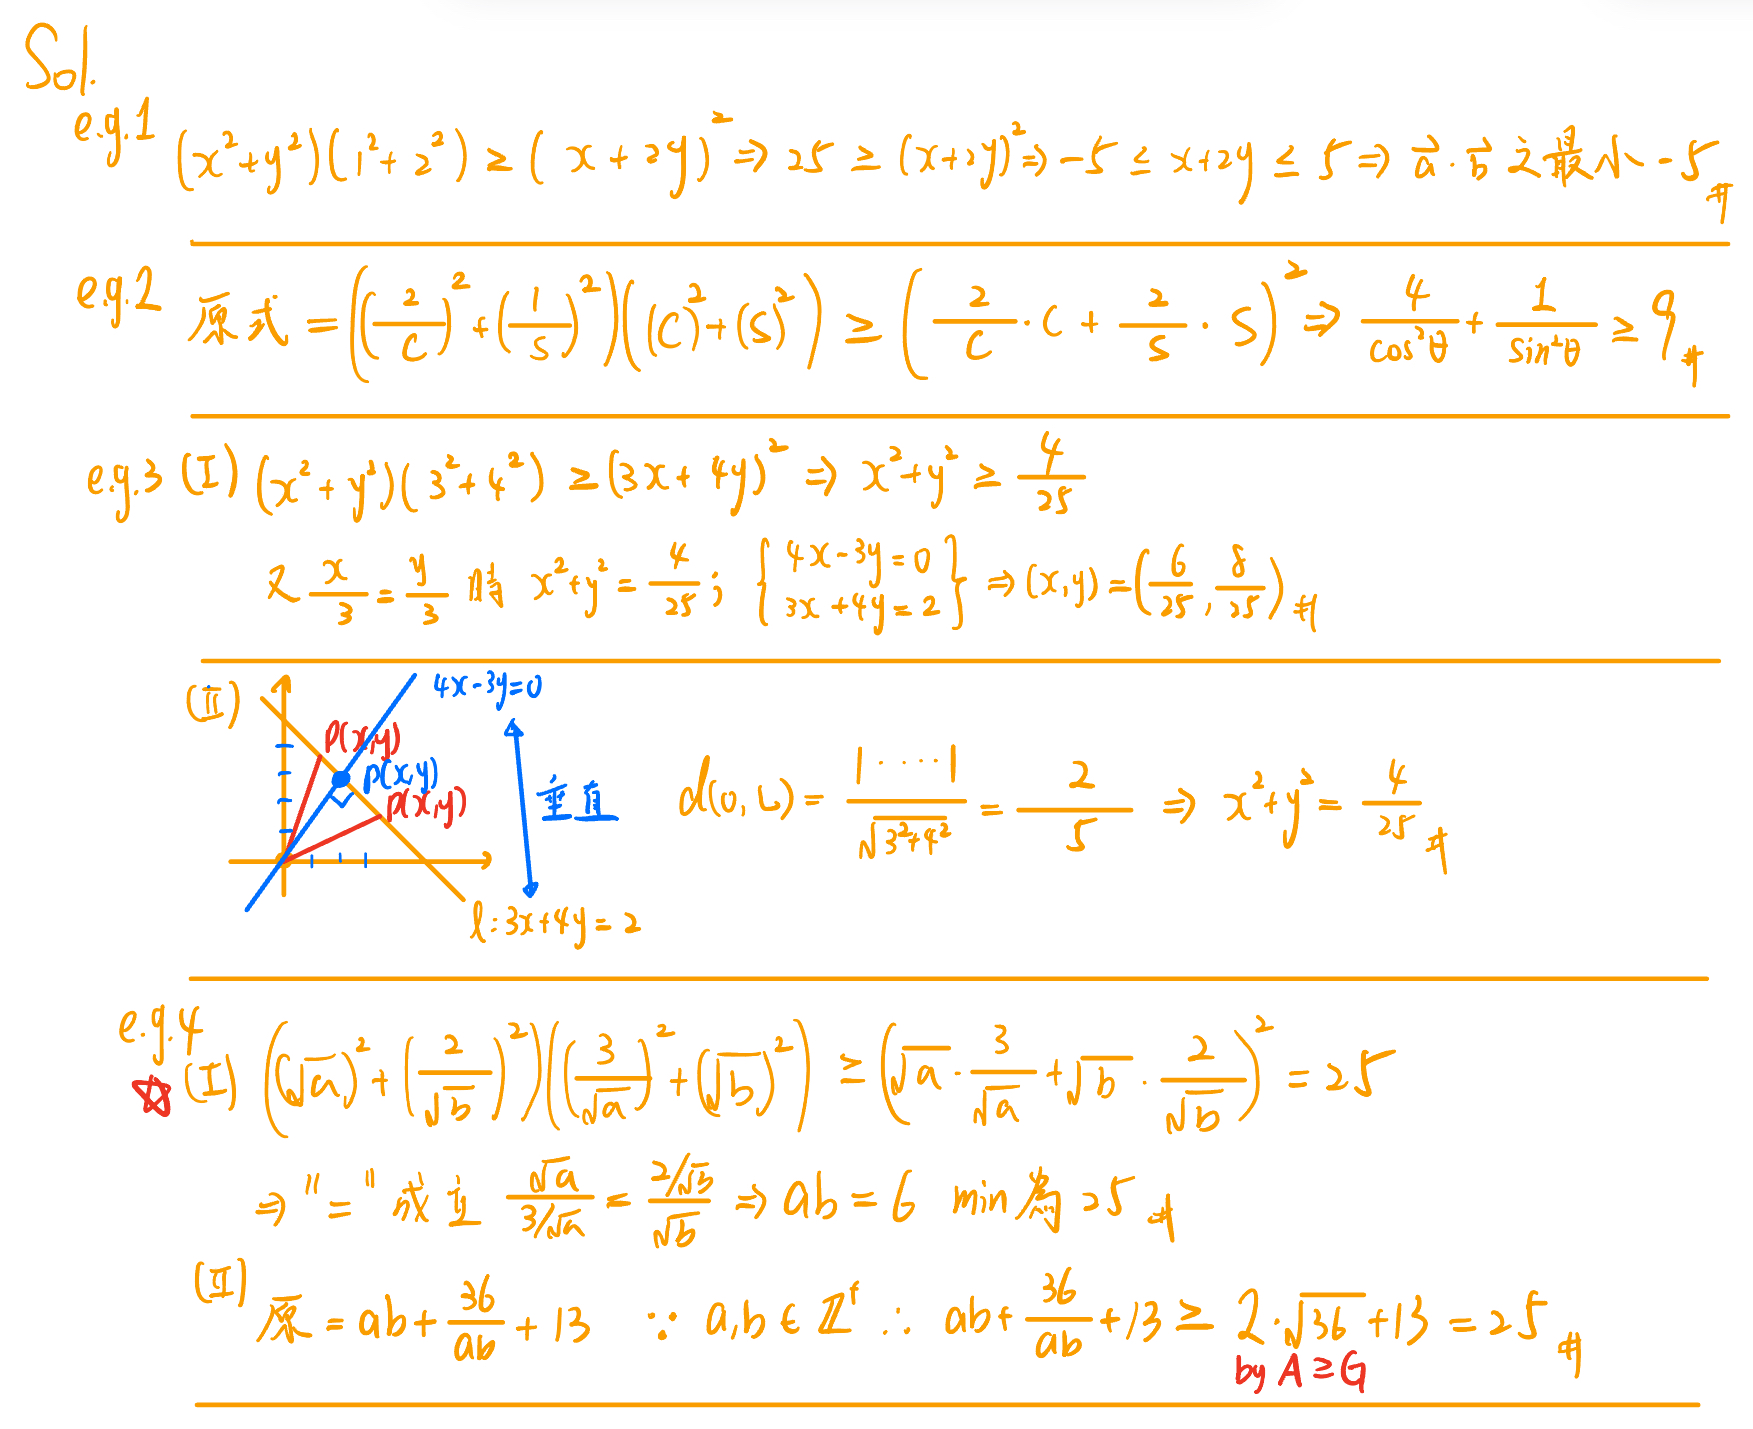 Sol.
e.g.1 (x²+y²)(1²+2²) ≥ (x+2y)² ⇒ 25 ≥ (x+2y)² ⇒ -5 ≤ x+2y ≤ 5 ⇒ a⃗·b⃗ 之最小 -5 #
e.g.2 原式 = ((2/C)²+(1/S)²)((C)²+(S)²) ≥ (2/C·C + 2/S·S)² ⇒ 4/cos²θ + 1/sin²θ ≥ 9 #
e.g.3 (I) (x²+y²)(3²+4²) ≥ (3x+4y)² ⇒ x²+y² ≥ 4/25
又 x/3 = y/3 時 x²+y² = 4/25 ; { 4x-3y=0 3x+4y=2 } ⇒ (x,y) = (6/25, 8/25) #
(II)
4x-3y=0
P(x,y)
P(x,y)
P(x,y)
垂直
d(0, L) = |·····|/√3²+4² = 2/5 ⇒ x²+y² = 4/25 #
l: 3x+4y = 2
e.g.4
(I) ((√a)²+(2/√b)²)((3/√a)²+(√b)²) ≥ (√a·3/√a + √b·2/√b)² = 25
⇒ "=" 成立 √a/(3/√a) = (2/√b)/√b ⇒ ab = 6 min為 25 #
(II) 原 = ab + 36/ab + 13 ∵ a,b ∈ ℤ⁺ ∴ ab + 36/ab + 13 ≥ 2·√36 + 13 = 25 #
by A ≥ G